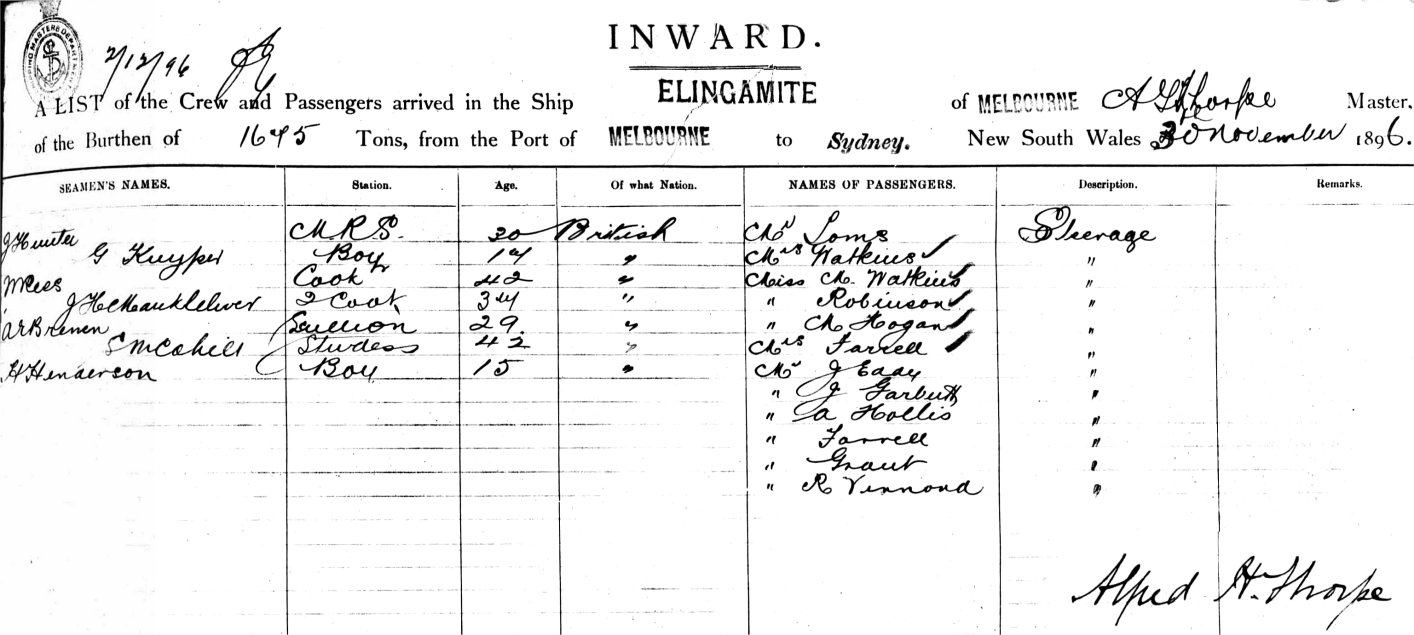 2/12/96
INWARD.
A LIST of the Crew and Passengers arrived in the Ship ELINGAMITE of MELBOURNE Thorpe Master,
of the Burthen of 1675 Tons, from the Port of MELBOURNE to Sydney. New South Wales 30 November 1896.
SEAMEN'S NAMES. Station. Age. Of what Nation. NAMES OF PASSENGERS. Description. Remarks.
J Hunter 30 British Steerage
G Kuyper Boy 17 " Mrs Watkins "
W Rees Cook 42 " Miss M. Watkins "
2 Cook 34 " " Robinson "
Scullion 29 " " M Hogan "
S McCahill Studess 42 " Mrs Farrell "
H Henderson Boy 15 " Mr J Eddy "
" J Garbutt "
" A Hollis "
" Farrell "
" Grant "
" R "
Alfred H. Thorpe